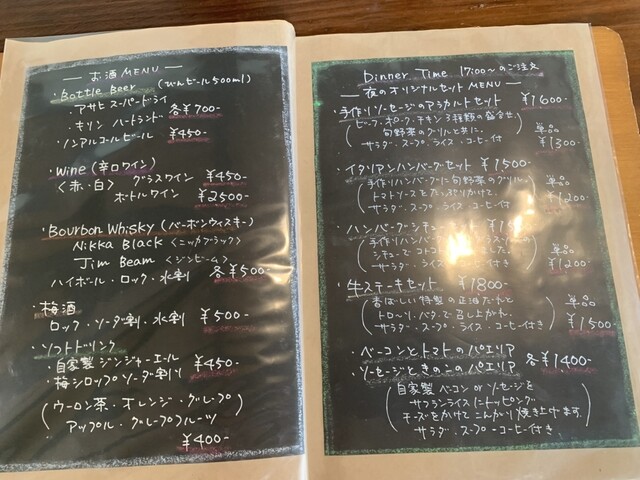 — お酒 MENU —
・Bottle Beer (びんビール500ml)
・アサヒ スーパードライ
・キリン ハートランド 各¥700-
・ノンアルコールビール ¥450-
・Wine (辛口ワイン)
<赤・白> グラスワイン ¥450-
ボトルワイン ¥2500-
・Bourbon Whisky (バーボンウィスキー)
Nikka Black <ニッカブラック>
Jim Beam <ジンビーム>
ハイボール・ロック・水割 各¥500-
・梅酒
ロック・ソーダ割・水割 ¥500-
・ソフトドリンク
・自家製ジンジャーエール ¥450-
・梅シロップソーダ割り
(ウーロン茶・オレンジ・グレープ
アップル・グレープフルーツ)
¥400-
Dinner Time 17:00〜のご注文
— 夜のオリジナルセット MENU —
・手作りソーセージのアラカルトセット ¥1600-
(ビーフ、ポーク、チキン3種類の盛合せ、
旬野菜のグリルと共に。
サラダ・スープ・ライス・コーヒー付) 単品 ¥1300-
・イタリアンハンバーグセット ¥1500-
(手作りハンバーグに旬野菜のグリル、
トマトソースをたっぷりかけて。
サラダ・スープ・ライス・コーヒー付) 単品 ¥1,200-
・ハンバーグシチューセット
(手作りハンバーグ
シチューで
サラダ・ライス・コーヒー付き) 単品 ¥1200-
・牛ステーキセット ¥1800-
(香ばしい特製の正油だれと
トロ〜リ、バタで召し上がれ。
サラダ・スープ・ライス・コーヒー付き) 単品 ¥1500-
・ベーコンとトマトのパエリア
・ソーセージときのこのパエリア 各¥1400-
(自家製ベーコン or ソーセージを
サフランライスにトッピング
チーズをかけてこんがり焼き上げます。
サラダ・スープ・コーヒー付き)